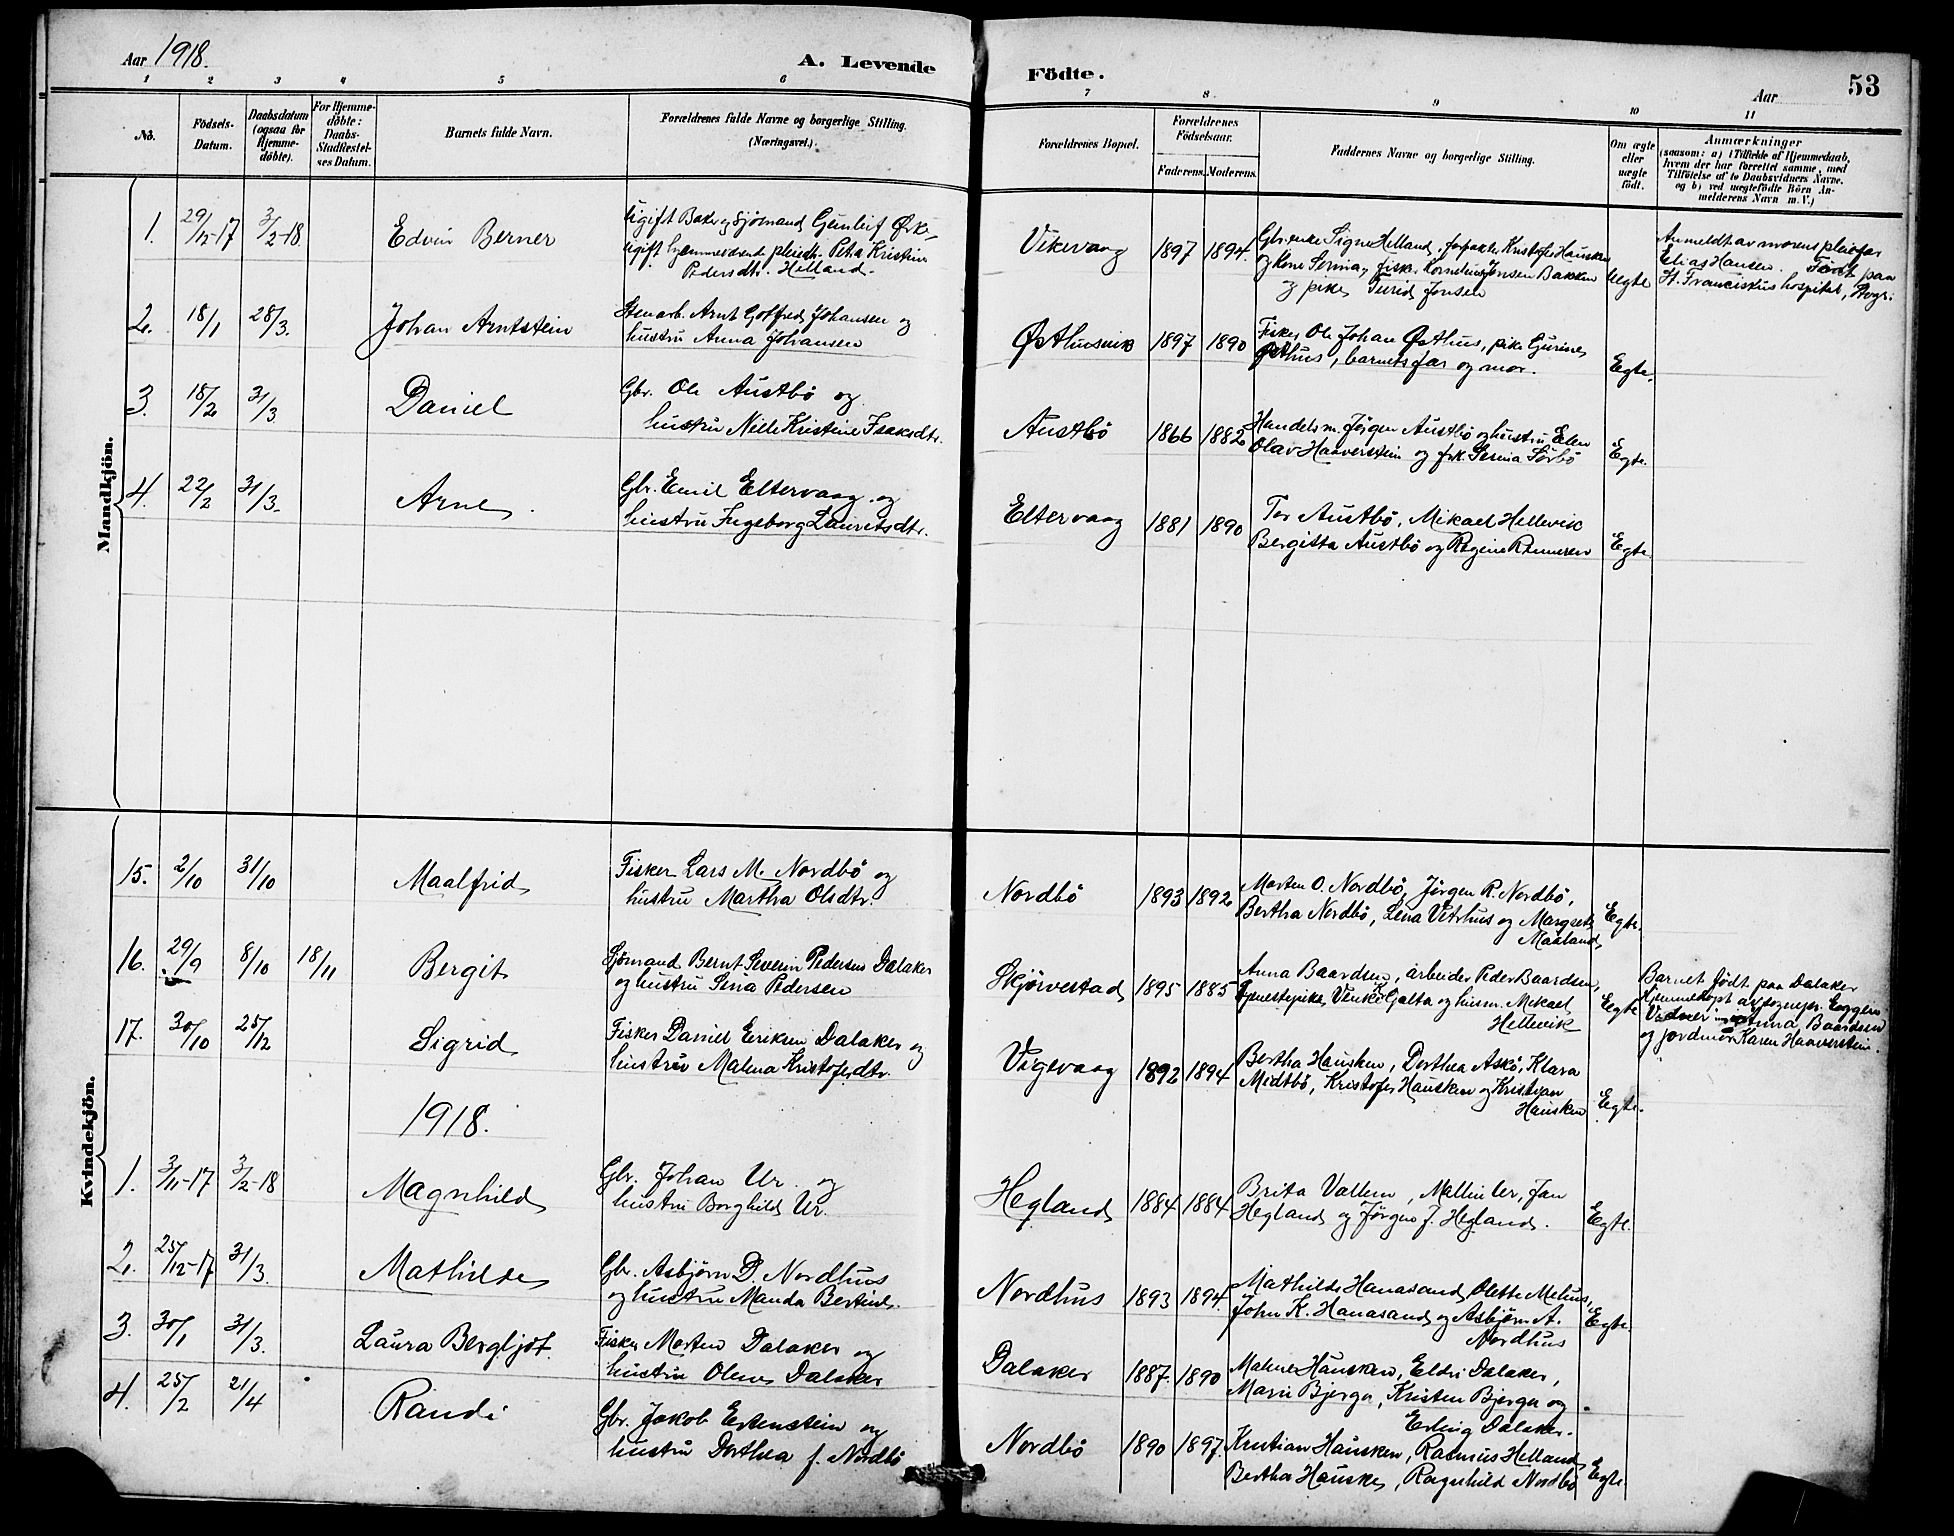 Aar 1918.
A. Levende
Födte.
Aar
53
1 2 3 4 5 6 7 8 9 10 11
No.
Födsels-
Datum.
Daabsdatum
(ogsaa for
Hjemme-
döbte).
For Hjemme-
döbte:
Daabs-
Stadfæstel-
ses Datum.
Barnets fulde Navn.
Forældrenes fulde Navne og borgerlige Stilling.
(Næringsvei.)
Forældrenes Bopæl.
Forældrenes
Födselsaar.
Faderens. Moderens.
Faddernes Navne og borgerlige Stilling.
Om ægte
eller
uægte
födt.
Anmærkninger
(saasom: a) i Tilfælde af Hjemmedaab,
hvem der har forrettet samme, med
Tilföielse af to Daabsvidners Navne.
og b) ved uægtefödte Börn An-
melderens Navn m. V.)
Mandkjön.
1. 29/12-17 3/2-18 Edvin Berner
Ugift Baker og Sjømand Gunleif
ugift hjemmeværende pleied. Petra Kristine
Pedersdtr. Helland.
Vikevaag 1897 1894
Gbr.enke Signe Helland, forpakter Kristofer Hausken
og kone Serina, fisker Kornelius Jensen Bakken
og pike Jensen
Uegte
Anmeldt av morens pleiefar
Elias Hansen. Födt paa
St. Franciskus hospital,
2. 18/1 28/3. Johan Arntstein
Stenarb. Arnt Gotfred Johansen og
hustru Anna Johansen
Østhusvik 1897 1890
Fisker Ole Johan Østhus, pike Gurine
Østhus, barnets far og mor.
Egte.
3. 18/2 31/3 Daniel
Gbr. Ole Austbö og
hustru Nille Kristine Isaksdtr.
Austbö 1866 1882
Handelsm. Jörgen Austbö og hustru Elen
Olav Haaverstein og frk. Serina Sörbö
Egte.
4. 22/2 31/3. Arne
Gbr. Emil Eltervaag og
hustru Ingeborg Lauritsdtr.
Eltervaag 1881 1890
Tor Austbö, Mikael Hellevik
Bergitta Austbö og Regine
Egte.
Kvindekjön.
15. 2/10 31/10 Maalfrid
Fisker Lars M. Nordbö og
hustru Martha Olsdtr.
Nordbö 1893 1892
Morten O. Nordbö, Jörgen R. Nordbö,
Bertha Nordbö, Lena Vetrhus og Margrete
Maaland
Egte.
16. 29/9 8/10 18/11 Bergit
Sjömand Bernt Severin Pedersen Dalaker
og hustru Sina Pedersen
Skjörvestad 1895 1885
Anna Baardsen, arbeider Peder Baardsen,
tjenestepike Galta og husm. Mikael
Hellevik
Egte
Barnet födt paa Dalaker
Hjemmedöpt av sognepr. Eggen
Vidner: Anna Baardsen
og jordmor Karen Haaverstein.
17. 30/10 25/12 Sigrid
Fisker Daniel Eriksen Dalaker og
hustru Malena Kristofersdtr.
Vigevaag 1892 1894
Bertha Hausken, Dorthea Askö, Klara
Midtbö, Kristofer Hausken og Kristian
Hausken
Egte.
1918.
1. 3/11-17 3/2-18 Magnhild
Gbr. Johan Ur og
hustru Borghild Ur.
Hegland 1884 1884
Brita Vallem, Malli Ur, Jan
Hegland og Jörgen J. Hegland.
Egte.
2. 25/12-17 31/3 Mathilde
Gbr. Asbjörn D. Nordhus
og hustru Manda Bertine.
Nordhus 1893 1894
Mathilde Hanasand, Olette Melhus,
John K. Hanasand og Asbjörn A.
Nordhus
Egte.
3. 30/1 31/3. Laura Bergljot.
Fisker Morten Dalaker og
hustru Olene Dalaker
Dalaker 1887 1890
Malene Hausken, Eldri Dalaker,
Marie Bjerga, Kristen Bjerga og
Erling Dalaker.
4. 25/2 21/4 Randi
Gbr. Jakob Ertenstein og
hustru Dorthea f. Nordbö
Nordbö 1890 1897.
Kristian Hausken, Rasmus Helland
Bertha Hausken, Ragnhild Nordbö
Egte.